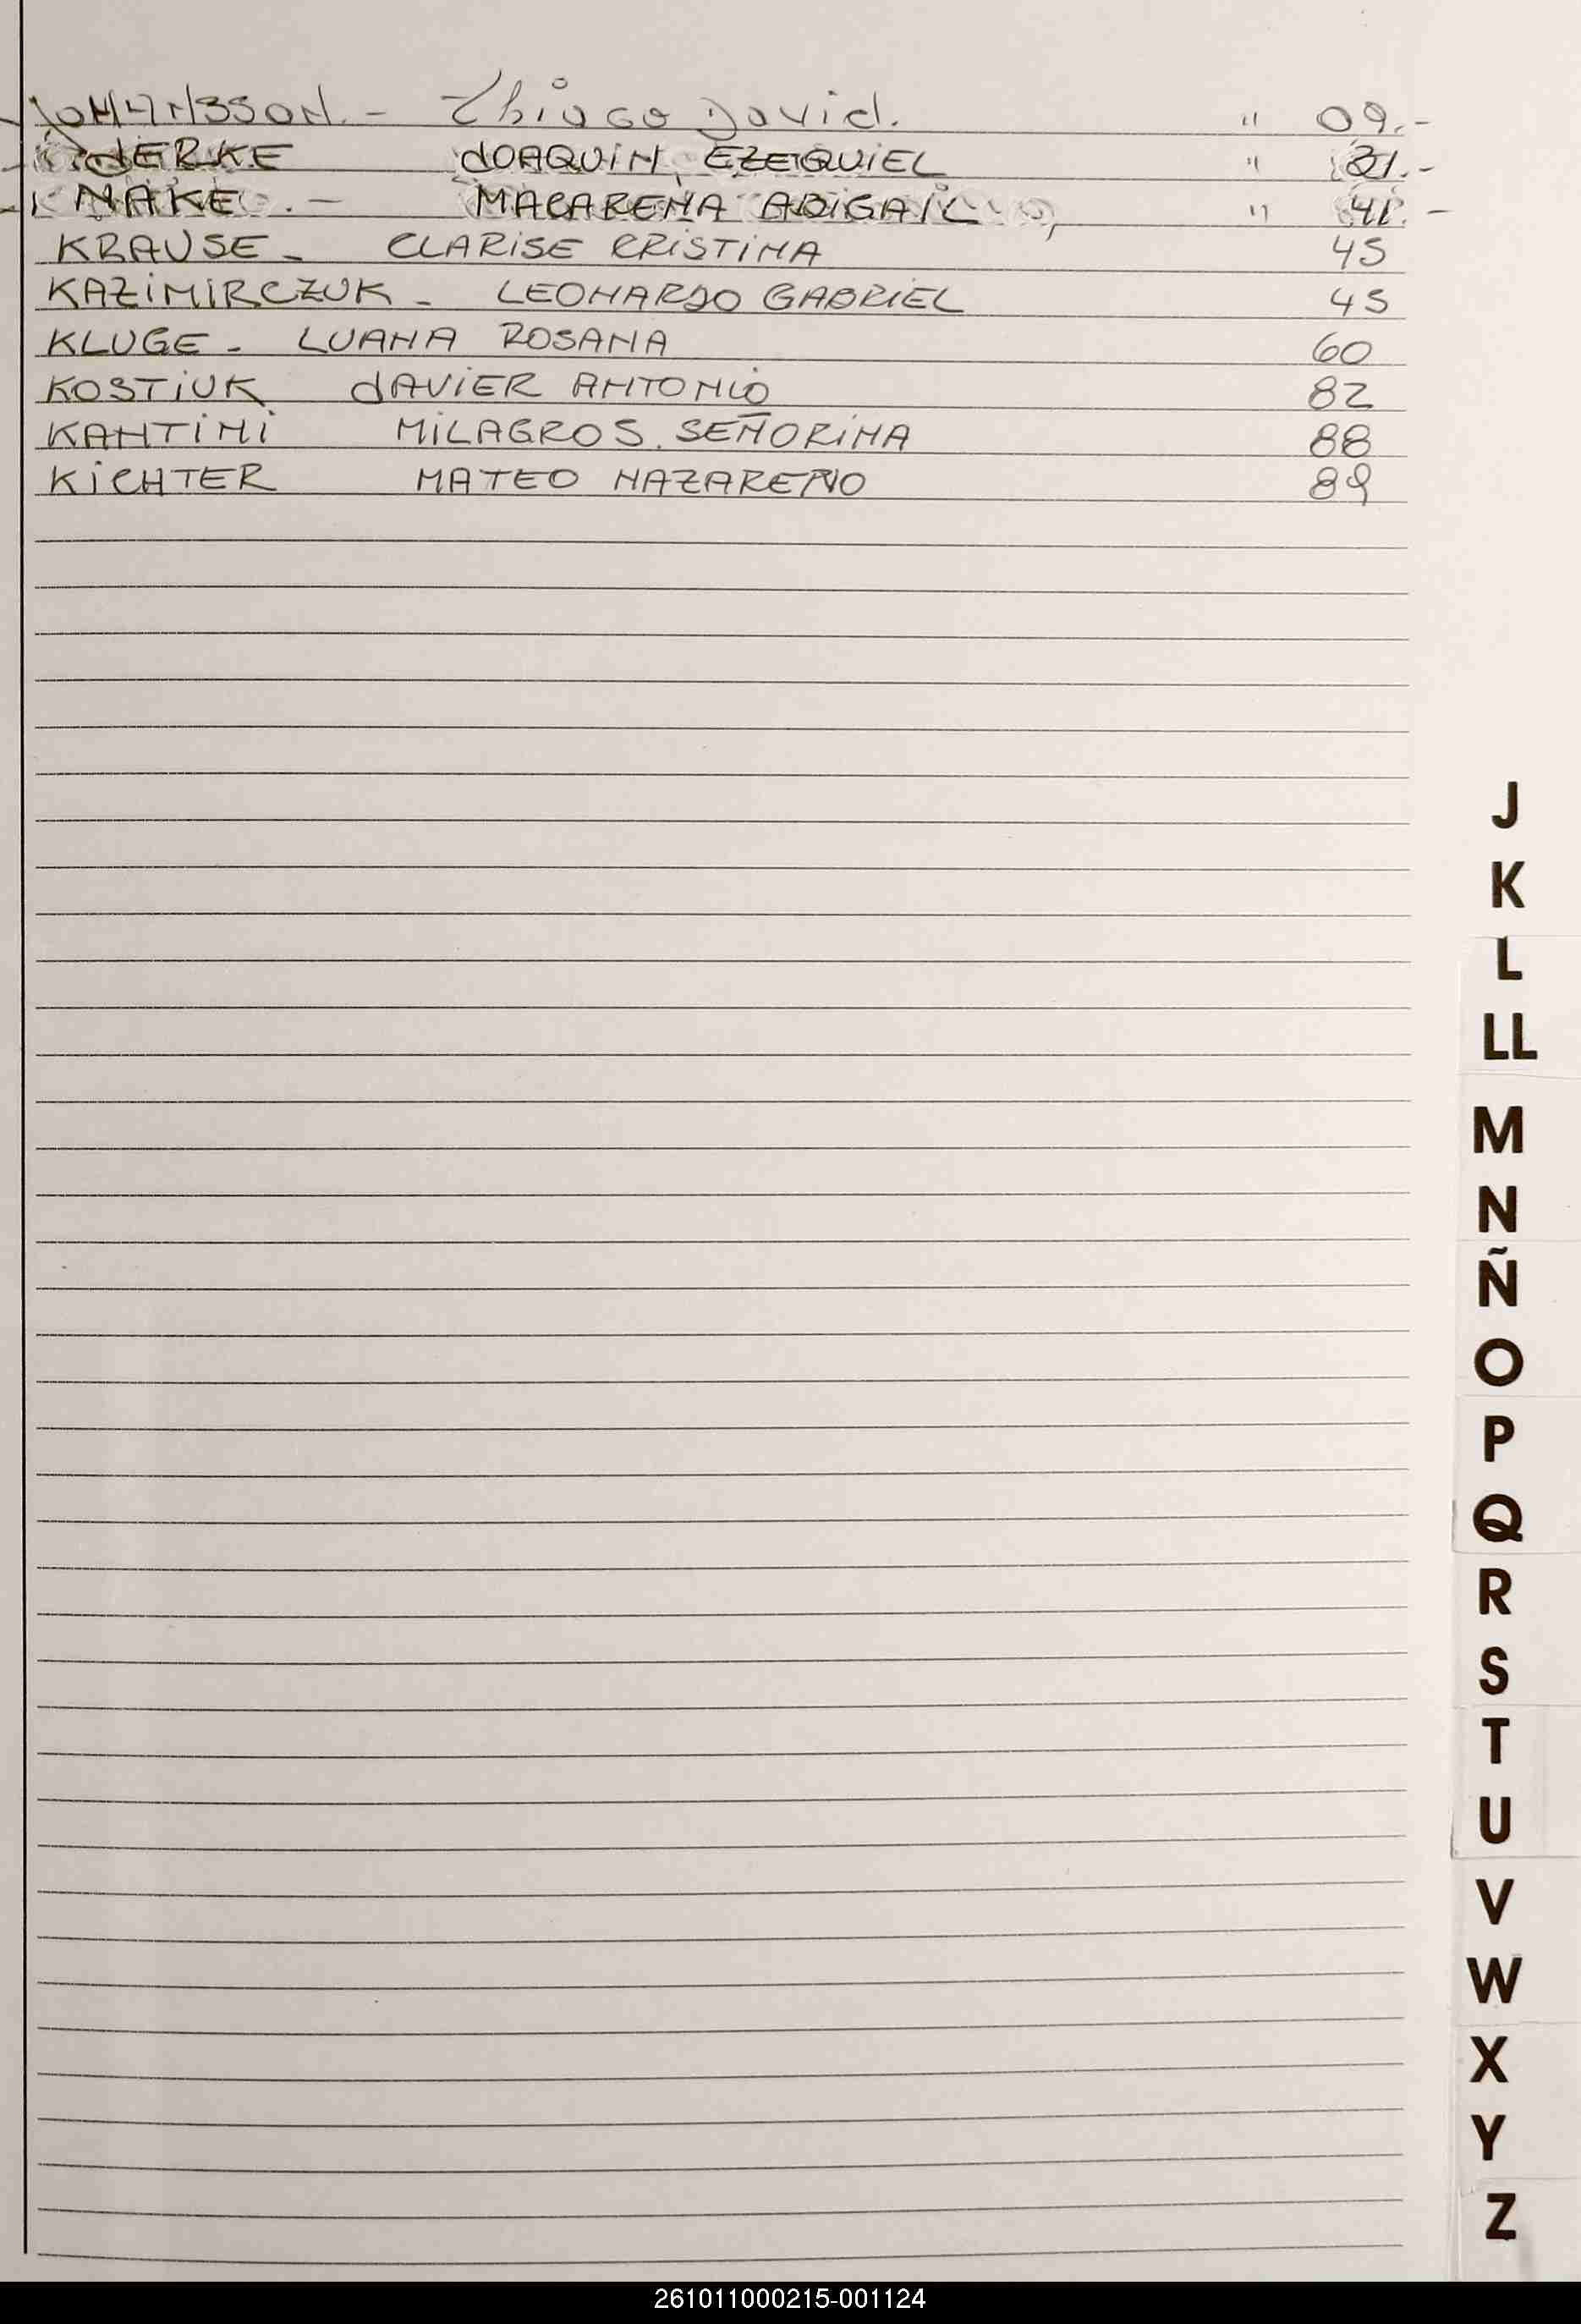 JOHANSSON.- Thiago David. " 09.-
JERKE JOAQUIN EZEQUIEL " 21.-
KNAKE.- MACARENA ABIGAIL " 41.-
KRAUSE - CLARISE CRISTINA 45
KAZIMIRCZUK - LEONARDO GABRIEL 45
KLUGE - LUANA ROSANA 60
KOSTIUK JAVIER ANTONIO 82
KANTINI MILAGROS SEÑORINA 88
KICHTER MATEO NAZARENO 89
J
K
L
LL
M
N
Ñ
O
P
Q
R
S
T
U
V
W
X
Y
Z
261011000215-001124